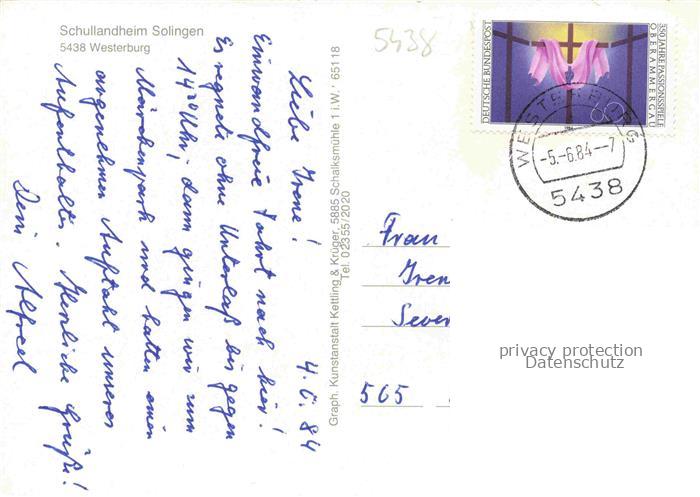 Schullandheim Solingen
5438 Westerburg
5438
4.6.84
Liebe Irene!
Einwandfreie Fahrt nach hier!
Es regnete ohne Unterlaß bis gegen
14³⁰ Uhr; dann gingen wir zum
Märchenpark und hatten einen
angenehmen Auftakt unseres
Aufenthaltes. Herzliche Grüße!
Dein Alfred
Graph. Kunstanstalt Kettling & Krüger, 5885 Schalksmühle 1 i.W. · 65118
Tel. 02355/2020
DEUTSCHE BUNDESPOST
350 JAHRE PASSIONSSPIELE
OBERAMMERGAU
60
WESTERBURG
-5.-6.84--7
5438
Frau
Iren
Sever
565
privacy protection
Datenschutz